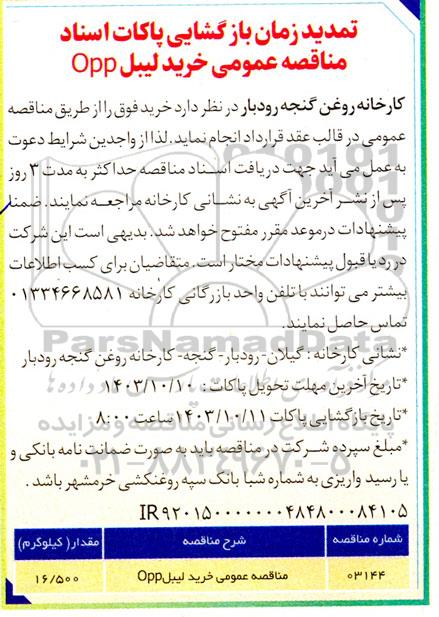 تمدید زمان بازگشایی پاکات اسناد
مناقصه عمومی خرید لیبل Opp
کارخانه روغن گنجه رودبار در نظر دارد خرید فوق را از طریق مناقصه
عمومی در قالب عقد قرارداد انجام نماید. لذا از واجدین شرایط دعوت
به عمل می آید جهت دریافت اسناد مناقصه حداکثر به مدت ۳ روز
پس از نشر آخرین آگهی به نشانی کارخانه مراجعه نمایند. ضمنا
پیشنهادات درموعد مقرر مفتوح خواهد شد. بدیهی است این شرکت
در رد یا قبول پیشنهادات مختار است. متقاضیان برای کسب اطلاعات
بیشتر می توانند با تلفن واحد بازرگانی کارخانه ۰۱۳۳۴۶۶۸۵۸۱
تماس حاصل نمایند.
ParsNamadData
*نشانی کارخانه : گیلان- رودبار- گنجه- کارخانه روغن گنجه رودبار
*تاریخ آخرین مهلت تحویل پاکات : ۱۴۰۳/۱۰/۱۰
*تاریخ بازگشایی پاکات ۱۴۰۳/۱۰/۱۱ ساعت ۸:۰۰
*مبلغ سپرده شرکت در مناقصه باید به صورت ضمانت نامه بانکی و
یا رسید واریزی به شماره شبا بانک سپه روغنکشی خرمشهر باشد .
۰۲۱-۸۸۳۴۹۶۷۰-۵
IR۹۲۰۱۵۰۰۰۰۰۰۰۴۸۴۸۰۰۰۸۴۱۰۵
شماره مناقصه شرح مناقصه مقدار( کیلوگرم)
۰۳۱۴۴ مناقصه عمومی خرید لیبل Opp ۱۶/۵۰۰